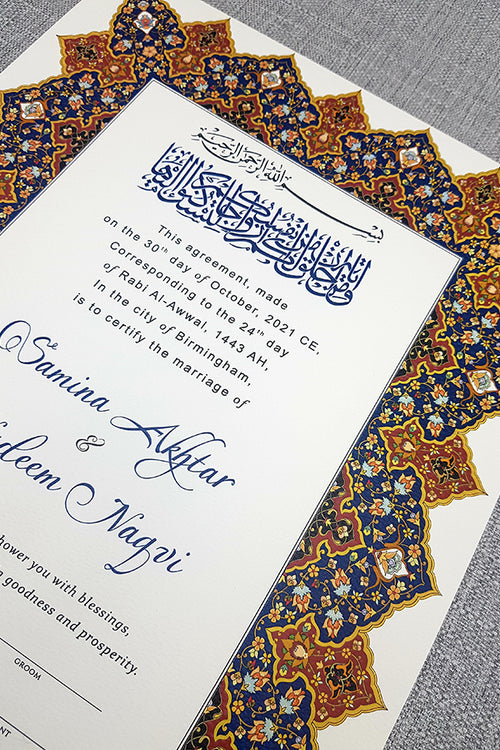 بسم الله الرحمن الرحيم
This agreement, made
on the 30th day of October, 2021 CE,
Corresponding to the 24th day
of Rabi Al-Awwal, 1443 AH,
In the city of Birmingham,
is to certify the marriage of
Samina Akhtar
&
deem Naqvi
hower you with blessings,
goodness and prosperity.
GROOM
NT